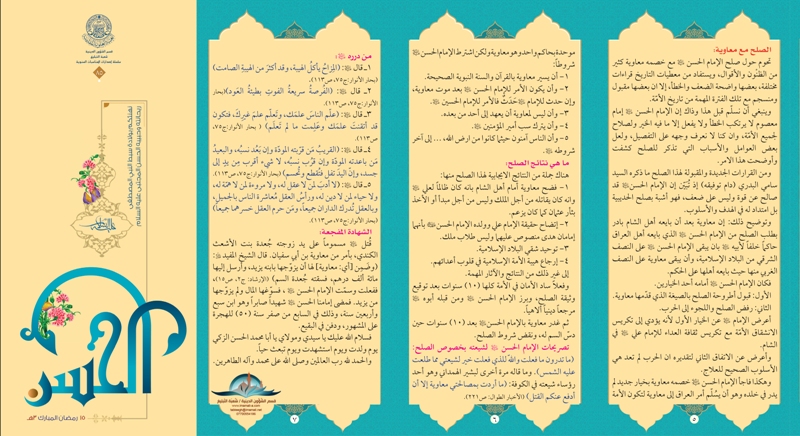 الصلح مع معاوية:
تحوم حول صلح الإمام الحسن مع خصمه معاوية كثير
من الظنون والأقوال، ويستفاد من معطيات التاريخ قراءات
مختلفة، بعضها واضحة الضعف والخطأ، إلا ان بعضها مقبول
ومنسجم مع تلك الفترة المهمة من تاريخ الأمّة.
وينبغي أن نسلّم قبل هذا وذاك إن الإمام الحسن إمام
معصوم لا يرتكب الخطأ ولا يفعل إلا ما فيه الخير ولصلاح
لجميع الأمّة، وان كنا لا نعرف وجهه على التفصيل، ولعل
بعض العوامل والأسباب التي تذكر للصلح كشفت
وأوضحت هذا الامر.
ومن القراءات الجديدة والمقبولة لهذا الصلح ما ذكره السيد
سامي البدري (دام توفيقه) إذ تبيّن إن الإمام الحسن قد
صالح عن قوة وليس على ضعف، فهو أشبه بصلح الحديبية
بل امتداد له في الهدف والأسلوب.
وتوضيح ذلك: ان معاوية بعد أن بايعه أهل الشام بادر
بطلب الصلح من الإمام الحسن الذي بايعه أهل العراق
حاكماً خلفاً لأبيه بان يبقى الإمام الحسن على النصف
الشرقي من البلاد الإسلامية، وأن يبقى معاوية على النصف
الغربي منها حيث بايعه أهلها على الحكم.
فكان الإمام الحسن أمامه أحد الخيارين.
الأول: قبول أطروحة الصلح بالصيغة الذي قدّمها معاوية.
الثاني: رفض الصلح واللجوء إلى الحرب.
أعرض الإمام عن الخيار الأول لأنه يؤدي إلى تكريس
الانشقاق الأمّة مع تكريس ثقافة العداء للإمام علي في
الشام.
وأعرض عن الاتفاق الثاني لتقديره ان الحرب لم تعد هي
الأسلوب الصحيح للعلاج.
وهكذا فاجأ الإمام الحسن خصمه معاوية بخيار جديد لم
يدر في خلده وهو أن يسلّم أمر العراق إلى معاوية لتكون الأمة
٥
موحدة بحاكم واحد وهو معاوية ولكن اشترط الإمام الحسن
شروطاً:
١- أن يسير معاوية بالقرآن والسنة النبوية الصحيحة.
٢- وأن يكون الأمر للإمام الحسن بعد موت معاوية،
وإن حدث للإمام حَدَثٌ فالأمر للإمام الحسين
٣- وأن ليس لمعاوية أن يعهد إلى أحد من بعده.
٤- وأن يترك سب أمير المؤمنين
٥- وأن الناس آمنون حيثما كانوا من ارض الله، ... إلى آخر
شروطه
ما هي نتائج الصلح:
هناك جملة من النتائج الايجابية لهذا الصلح منها:
١- فضح معاوية أمام أهل الشام بانه كان ظالماً لعلي
وانه كان يقاتله من أجل الملك وليس من أجل مبدأ أو الأخذ
بثأر عثمان كما كان يزعم.
٢- إتضاح حقيقة الإمام علي وولده الإمام الحسن بأنهما
إمامان هدى منصوص عليهما وليس طلاب ملك.
٣- توحيد شقي البلاد الإسلامية.
٤- إرجاع هيبة الأمة الإسلامية في قلوب أعدائهم.
إلى غير ذلك من النتائج والآثار المهمة.
وفعلاً ساد الأمان في الأمة كلها (١٠) سنوات بعد توقيع
وثيقة الصلح، وبرز الإمام الحسن ومن قبله أبوه
مرجعاً دينياً آلاهياً.
ثم غدر معاوية بالإمام الحسن بعد (١٠) سنوات حين
دسّ السم له، ونقض شروط الصلح.
تصريحات الإمام الحسن لشيعته بخصوص الصلح:
(ما تدرون ما فعلت والله للذي فعلت خير لشيعتي مما طلعت
عليه الشمس). وما قاله مرة أخرى لبشير الهمداني وهو أحد
رؤساء شيعته في الكوفة: (ما أردت بمصالحتي معاوية إلا أن
أدفع عنكم القتل) (الأخبار الطوال: ص٢٢١).
٦
من درره :
١- قال : (المِزاحُ يأكلُ الهيبةَ، وقد أكثرَ من الهيبةِ الصامت)
(بحار الأنوار: ج٧٥، ص١١٣).
٢- قال : (الفُرصةُ سريعةُ الفوتِ بطيئةُ العَود)(بحار
الأنوار: ج٧٥، ص١١٣).
٣- قال : (علّمِ الناسَ علمَك، وتعلّم علمَ غيرِك، فتكون
قد أتقنتَ علمَك وعلِمت ما لم تعلَم) (بحار الأنوار: ج٧٥،
ص١١٣).
٤- قال : (القريبُ مَن قرّبته المودّة وإن بَعُد نسبُه، والبعيدُ
مَن باعدته المودّة وإن قرُب نسبُه، لا شيء أقرب من يدٍ إلى
جسد، وإنّ اليدَ تفل فتُقطع وتُحسم) (بحار الأنوار: ج٧٥، ص١١٣).
٥- قال : (لا أدبَ لمن لا عقل له، ولا مروءة لمن لا همّة له،
ولا حياء لمن لا دين له، ورأسُ العقل مُعاشرة الناس بالجميل،
وبالعقل تُدرك الداران جميعاً، ومَن حرم العقل خسرهما جميعاً)
(بحار الأنوار: ج٧٥، ص١١٣).
الشهادة المفجعة:
قُتل مسموماً على يد زوجته جُعدة بنت الأشعث
الكندي، بأمر من معاوية بن أبي سفيان. قال الشيخ المفيد:
(وضَمِن [أي: معاوية] لها أن يزوّجها بابنه يزيد، وأرسل إليها
مائة ألف درهم، فسقته جُعدة السم) (الإرشاد: ج٢، ص١٥)،
ففعلت وسمّت الإمام الحسن ، فسوّغها المال ولم يزوّجها
من يزيد. فمضى إمامنا الحسن شهيداً صابراً وهو ابن سبع
وأربعين سنة، وذلك في السابع من صفر سنة (٥٠) للهجرة
على المشهور، ودفن في البقيع.
فسلام الله عليك يا سيدي ومولاي يا أبا محمد الحسن الزكي
يوم ولدت ويوم استشهدت ويوم تبعث حياً.
والحمد لله رب العالمين وصلى الله على محمد وآله الطاهرين.
قسم الشؤون الدينية / شعبة التبليغ
٧
قسم الشؤون الدينية
الحسن
١٥ رمضان المبارك ٣هـ